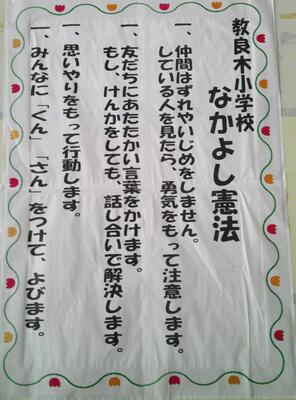 教良木小学校
なかよし憲法
一、仲間はずれやいじめをしません。
している人を見たら、勇気をもって注意します。
一、友だちにあたたかい言葉をかけます。
もし、けんかをしても、話し合いで解決します。
一、思いやりをもって行動します。
一、みんなに「くん」「さん」をつけて、よびます。